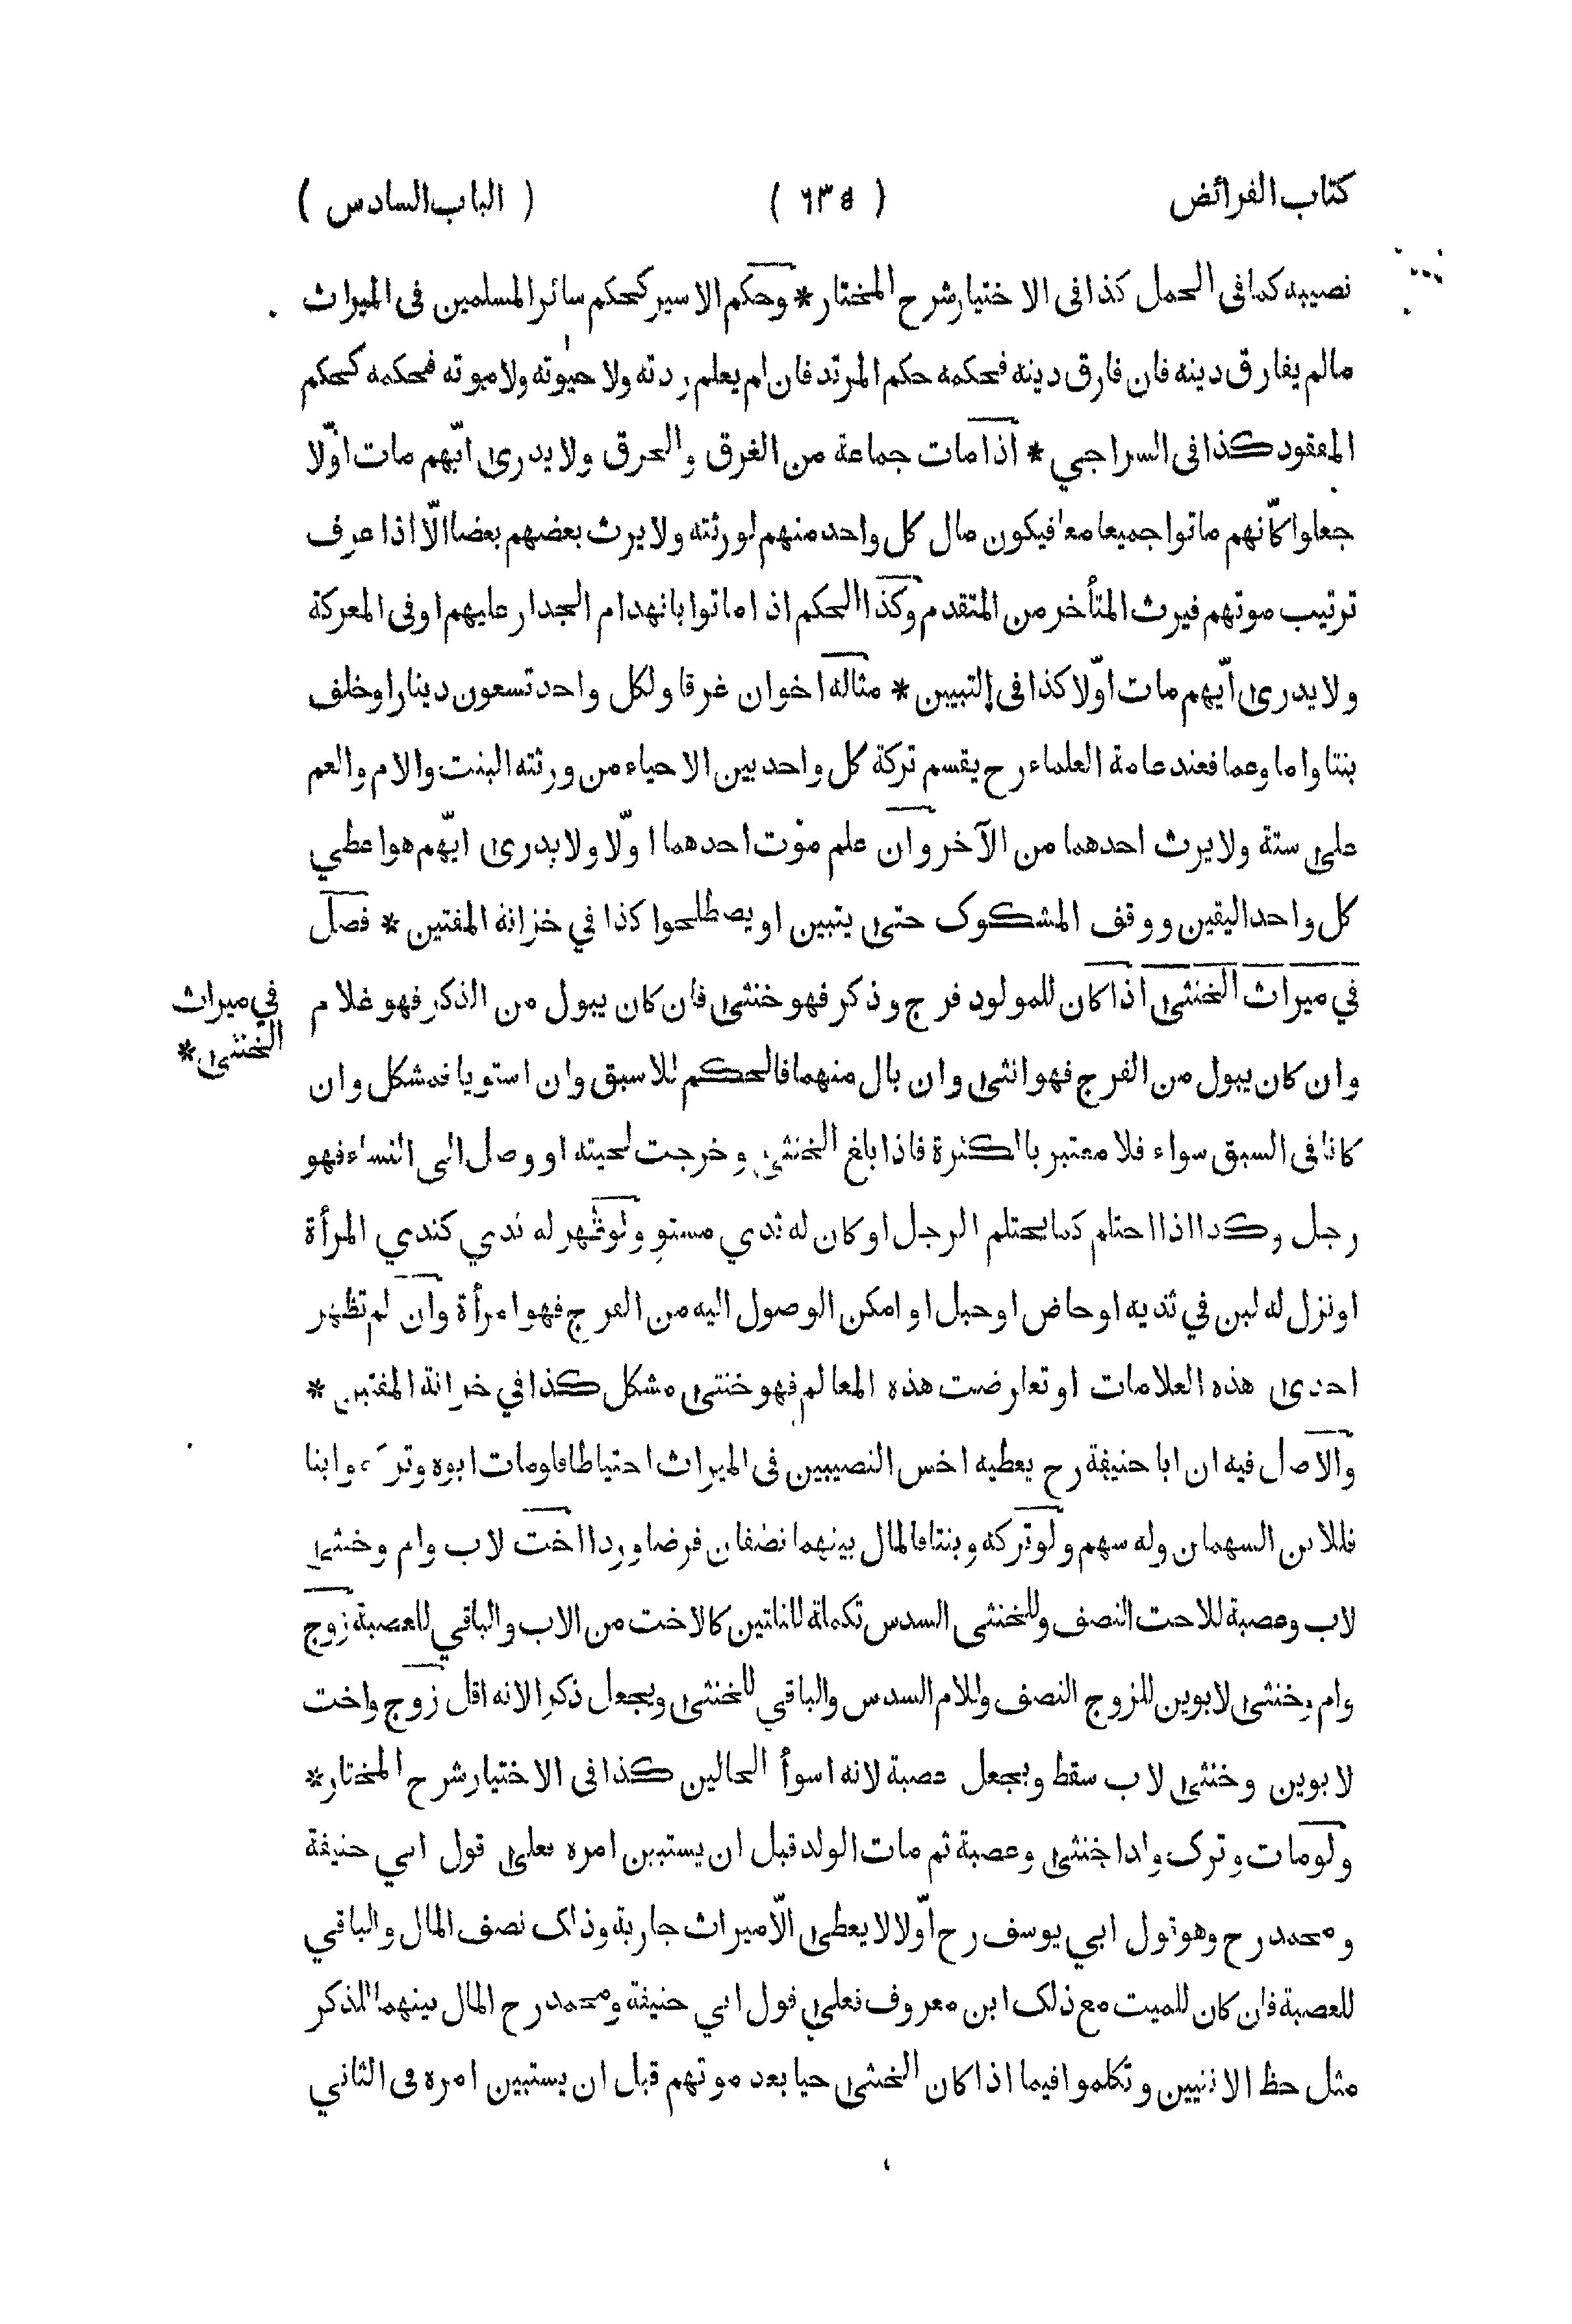 كتاب الفرائض ( ٦٣٥ ) ( الباب السادس )
نصيبه كما فى الحمل كذا فى الاختيار شرح المختار * وحكم الاسير كحكم سائر المسلمين فى الميراث
مالم يفارق دينه فان فارق دينه فحكمه حكم المرتد فان لم يعلم ردته ولا حيوته ولا موته فحكمه كحكم
المفقود كذا فى السراجي * اذا مات جماعة من الغرق والحرق ولا يدرى ايّهم مات اوّلا
جعلوا كأنهم ماتوا جميعا معا فيكون مال كل واحد منهم لورثته ولا يرث بعضهم بعضا الّا اذا عرف
ترتيب موتهم فيرث المتأخر من المتقدم وكذا الحكم اذا ماتوا بانهدام الجدار عليهم او فى المعركة
ولا يدرى ايّهم مات اوّلا كذا فى التبيين * مثاله اخوان غرقا ولكل واحد تسعون دينارا وخلف
بنتا واما وعما فعند عامة العلماء رح يقسم تركة كل واحد بين الاحياء من ورثته البنت والام والعم
على ستة ولا يرث احدهما من الآخر وان علم موت احدهما اوّلا ولا يدرى ايّهم هو اعطي
كل واحد اليقين ووقف المشكوك حتى يتبين او يصطلحوا كذا في خزانة المفتين * فصل
في ميراث الخنثى اذا كان للمولود فرج وذكر فهو خنثى فان كان يبول من الذكر فهو غلام
في ميراث
الخنثى *
وان كان يبول من الفرج فهو انثى وان بال منهما فالحكم للاسبق وان استويا فمشكل وان
كانا فى السبق سواء فلا معتبر بالكثرة فاذا بلغ الخنثى وخرجت لحيته او وصل الى النساء فهو
رجل وكذا اذا احتلم كما يحتلم الرجل او كان له ثدي مستو ولو ظهر له ثدي كثدي المرأة
او نزل له لبن في ثديه او حاض او حبل او امكن الوصول اليه من الفرج فهو امرأة وان لم تظهر
احدى هذه العلامات او تعارضت هذه المعالم فهو خنثى مشكل كذا في خزانة المفتين *
والاصل فيه ان ابا حنيفة رح يعطيه اخس النصيبين فى الميراث احتياطا فلو مات ابوه وتركه وابنا
فللابن السهمان وله سهم ولو تركه وبنتا فالمال بينهما نصفان فرضا وردا اخت لاب وام وخنثى
لاب وعصبة للاخت النصف وللخنثى السدس تكملة للثلثين كالاخت من الاب والباقي للعصبة زوج
وام وخنثى لابوين للزوج النصف وللام السدس والباقي للخنثى ويجعل ذكرا لانه اقل زوج واخت
لابوين وخنثى لاب سقط ويجعل عصبة لانه اسوأ الحالين كذا فى الاختيار شرح المختار *
ولو مات وترك ولدا خنثى وعصبة ثم مات الولد قبل ان يستبين امره فعلى قول ابي حنيفة
ومحمد رح وهو قول ابي يوسف رح اوّلا لا يعطى الّا ميراث جارية وذلك نصف المال والباقي
للعصبة فان كان للميت مع ذلك ابن معروف فعلى قول ابي حنيفة ومحمد رح المال بينهما للذكر
مثل حظ الانثيين وتكلموا فيما اذا كان الخنثى حيا بعد موتهم قبل ان يستبين امره فى الثاني